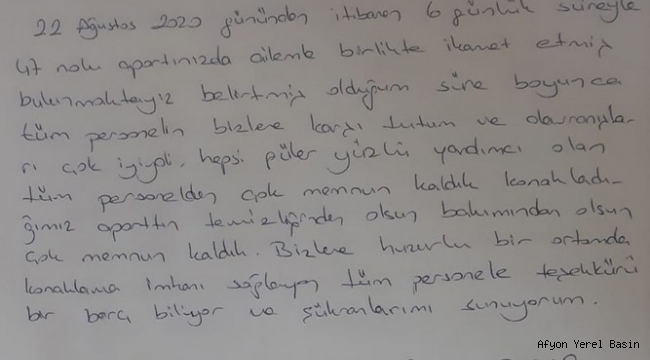 22 Ağustos 2020 gününden itibaren 6 günlük süreyle
47 nolu apartınızda ailemle birlikte ikamet etmiş
bulunmaktayız belirtmiş olduğum süre boyunca
tüm personelin bizlere karşı tutum ve davranışla-
rı çok iyiydi, hepsi püler yüzlü yardımcı olan
tüm personelden çok memnun kaldık konakladı-
ğımız aparttın temizliğinden olsun bakımından olsun
çok memnun kaldık. Bizlere huzurlu bir ortamda
konaklama imkanı sağlayan tüm personele teşekkürü
bir borç biliyor ve şükranlarımı sunuyorum.
Afyon Yerel Basin